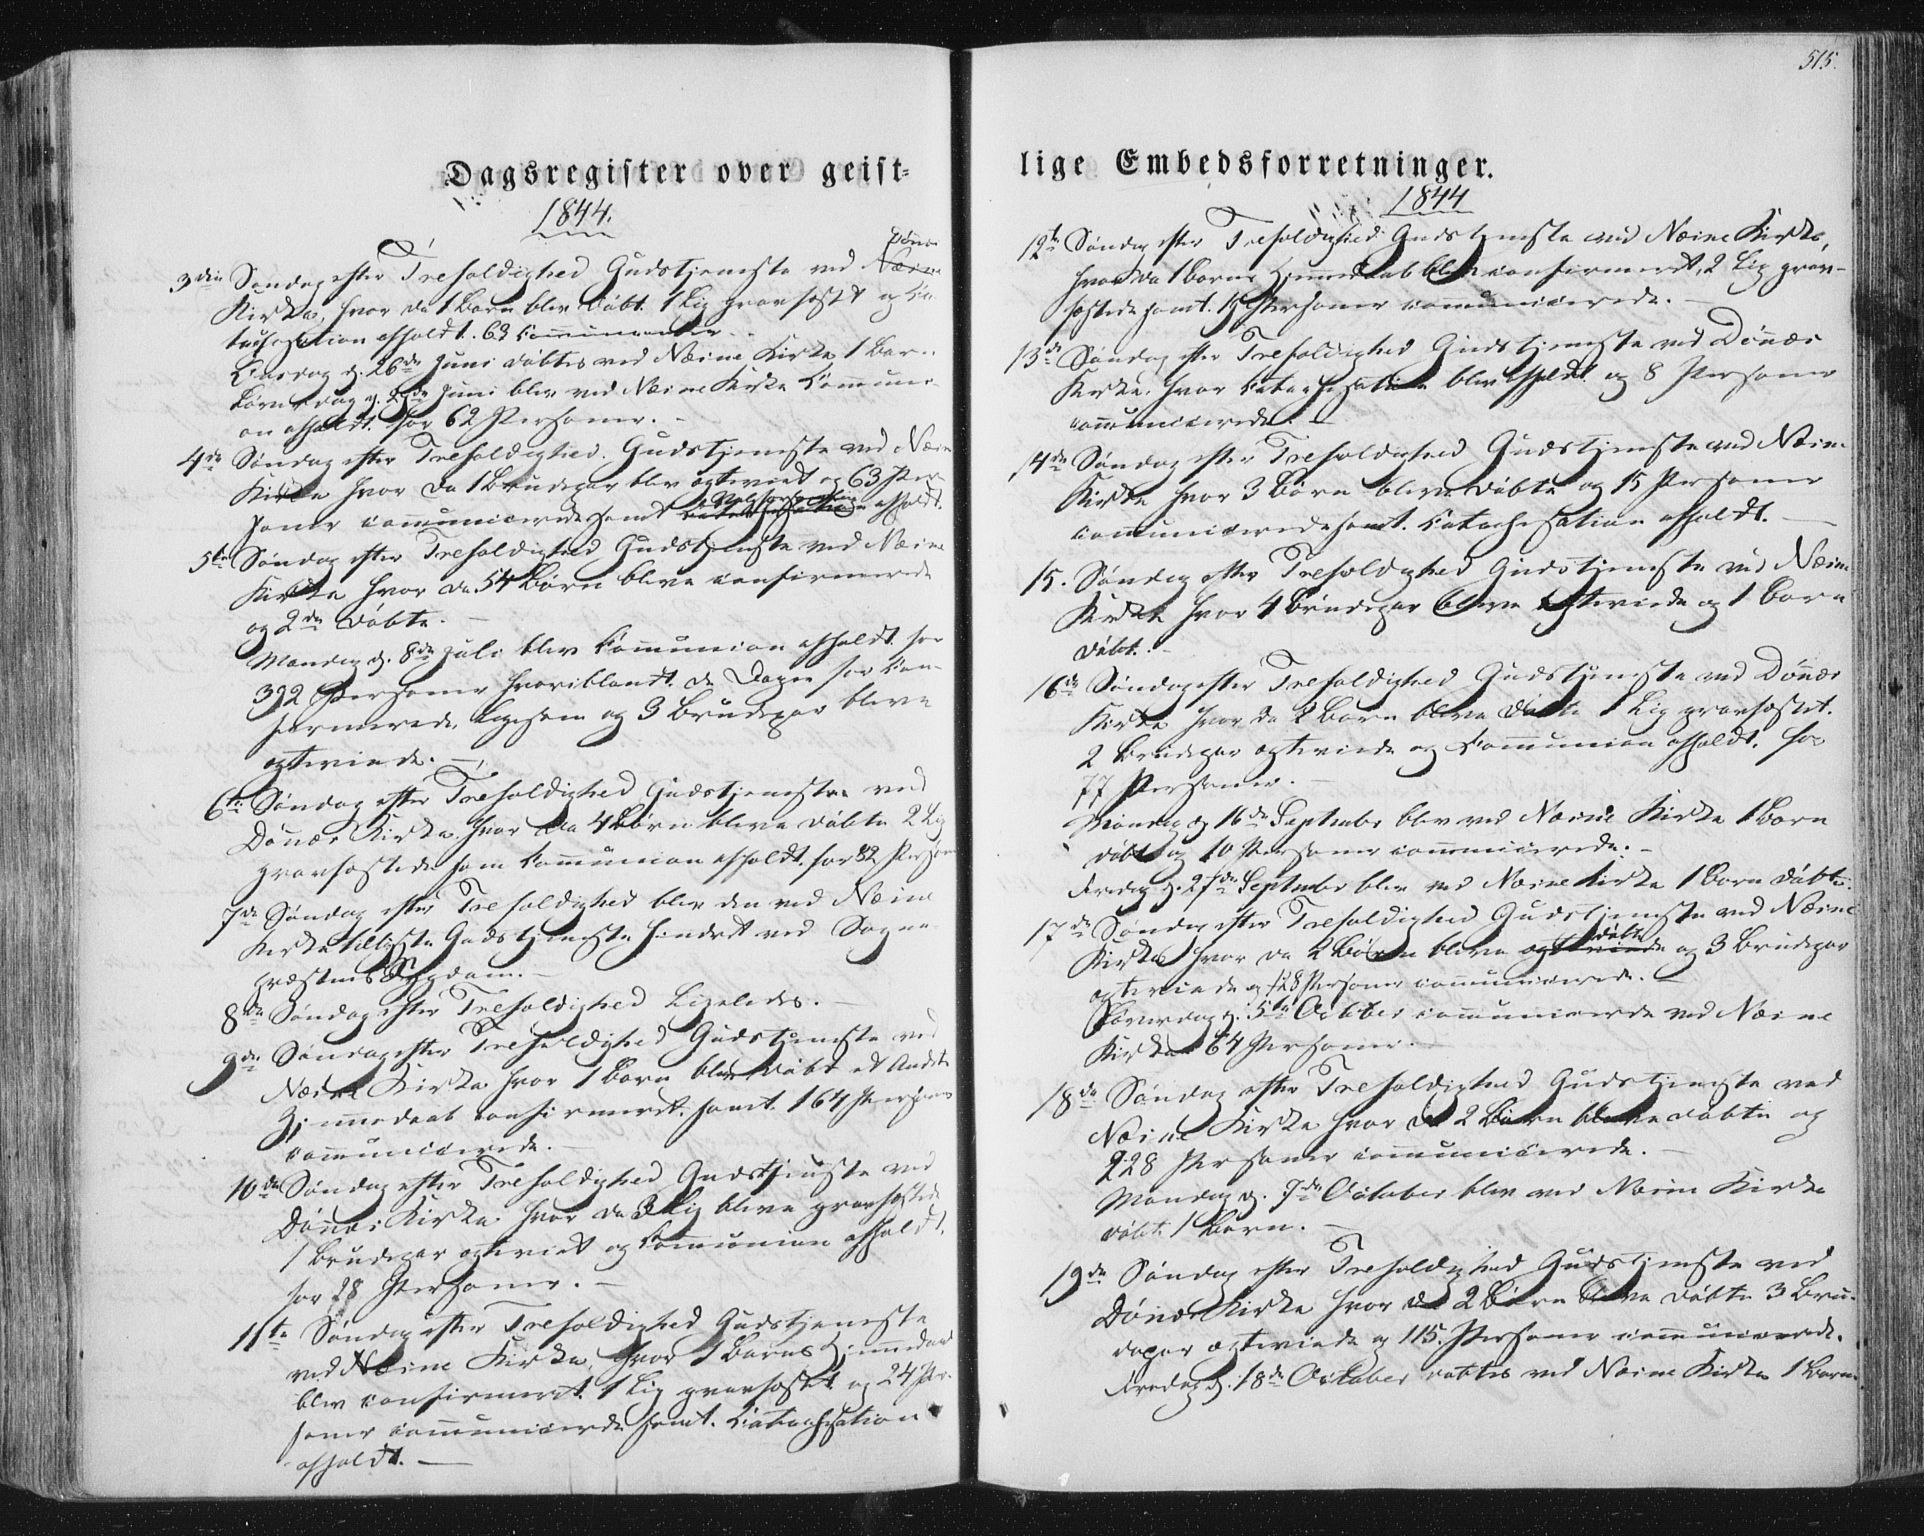 Dagsregister over geist=
1844.
Dønes
3die Søndag efter Trefoldighed Gudstjeneste ved Næsne
Kirke, hvor da 1 Barn blev døbt. 1 Lig gravfæstet og Ca-
techisation afholdt. 63 Communicanter.
Onsdag d. 26de Juni døbtes ved Næsne Kirke 1 Barn.
Løverdag d. Juni blev ved Næsne Kirke Communi-
on afholdt for 62 Personer. -
4de Søndag efter Trefoldighed. Gudstjeneste ved Næsne
Kirke hvor da 1 Brudepar blev ægteviet og 63 Per-
soner communicerede samt Catechisation afholdt.
5te Søndag efter Trefoldighed Gudstjeneste ved Næsne
Kirke hvor da 54 Børn bleve confirmerede
og 2de døbte. -
Mandag d. 8de Juli blev Communion afholdt for
392 Personer hvoriblandt de Dagen før Con-
firmerede, ligesom og 3 Brudepar bleve
ægteviede. -
6te Søndag efter Trefoldighed Gudstjeneste ved
Dønæs Kirke hvor da 4 Børn bleve døbte 2 Lig
gravfæstede samt Communion afholdt for 82 Personer
7de Søndag efter Trefoldighed blev den ved Næsne
Kirke tillyste Gudstjeneste hindret ved Sogne-
præstens Sygdom. -
8de Søndag efter Trefoldighed Ligeledes. -
9de Søndag efter Trefoldighed Gudstjeneste ved
Næsne Kirke hvor 1 Barn blev døbt et Andets
Hjemmedaab confirmeret samt 164 Personer
communicerede. -
10de Søndag efter Trefoldighed Gudstjeneste ved
Dønæs Kirke hvor da 3 Lig bleve gravfæstede
1 Brudepar ægteviet og Communion afholdt
for 78 Personer. -
11te Søndag efter Trefoldighed Gudstjeneste
ved Næsne Kirke, hvor 1 Barns Hjemmedaab
blev confirmeret 1 Lig gravfæstet og 24 Per-
soner communicerede samt Catechisation
afholdt. -
515.
lige Embedsforretninger.
1844
12te Søndag efter Trefoldighed Gudstjeneste ved Næsne Kirke,
hvor da 1 Barns Hjemmedaab blev confirmeret, 2 Lig grav-
fæstede samt Personer communicerede. -
13de Søndag efter Trefoldighed Gudstjeneste ved Dønæs
Kirke, hvor Catechisation blev holdt og 8 Personer
communicerede. -
14de Søndag efter Trefoldighed Gudstjeneste ved Næsne
Kirke hvor 3 Børn bleve døbte og 15 Personer
communicerede samt Catechisation afholdt. -
15. Søndag efter Trefoldighed Gudstjeneste ved Næsne
Kirke hvor 4 Brudepar bleve ægteviede og 1 Barn
døbt. -
16de Søndag efter Trefoldighed Gudstjeneste ved Dønæs
Kirke hvor da 2 Børn bleve døbte 1 Lig gravfæstet.
2 Brudepar ægteviede og Communion afholdt for
77 Personer. -
Mandag d. 16de September blev ved Næsne Kirke 1 Barn
døbt og 10 Personer communicerede. -
Fredag d. 27de September blev ved Næsne Kirke 1 Barn døbt.
17de Søndag efter Trefoldighed Gudstjeneste ved Næsne
Kirke hvor da 2 Børn bleve ægteviede døbte og 3 Brudepar
ægteviede og 128 Personer communicerede. -
Løverdag d. 5te October communicerede ved Næsne
Kirke 64 Personer. -
18de Søndag efter Trefoldighed Gudstjeneste ved
Næsne Kirke hvor da 2 Børn bleve døbte og
228 Personer communicerede. -
Mandag d. 7de October blev ved Næsne Kirke
døbt 1 Barn. -
19de Søndag efter Trefoldighed Gudstjeneste ved
Dønæs Kirke hvor da 2 Børn bleve døbte 3 Bru-
depar ægteviede og 115 Personer communicerede.
Fredag d. 18de October døbtes ved Næsne Kirke 1 Barn.